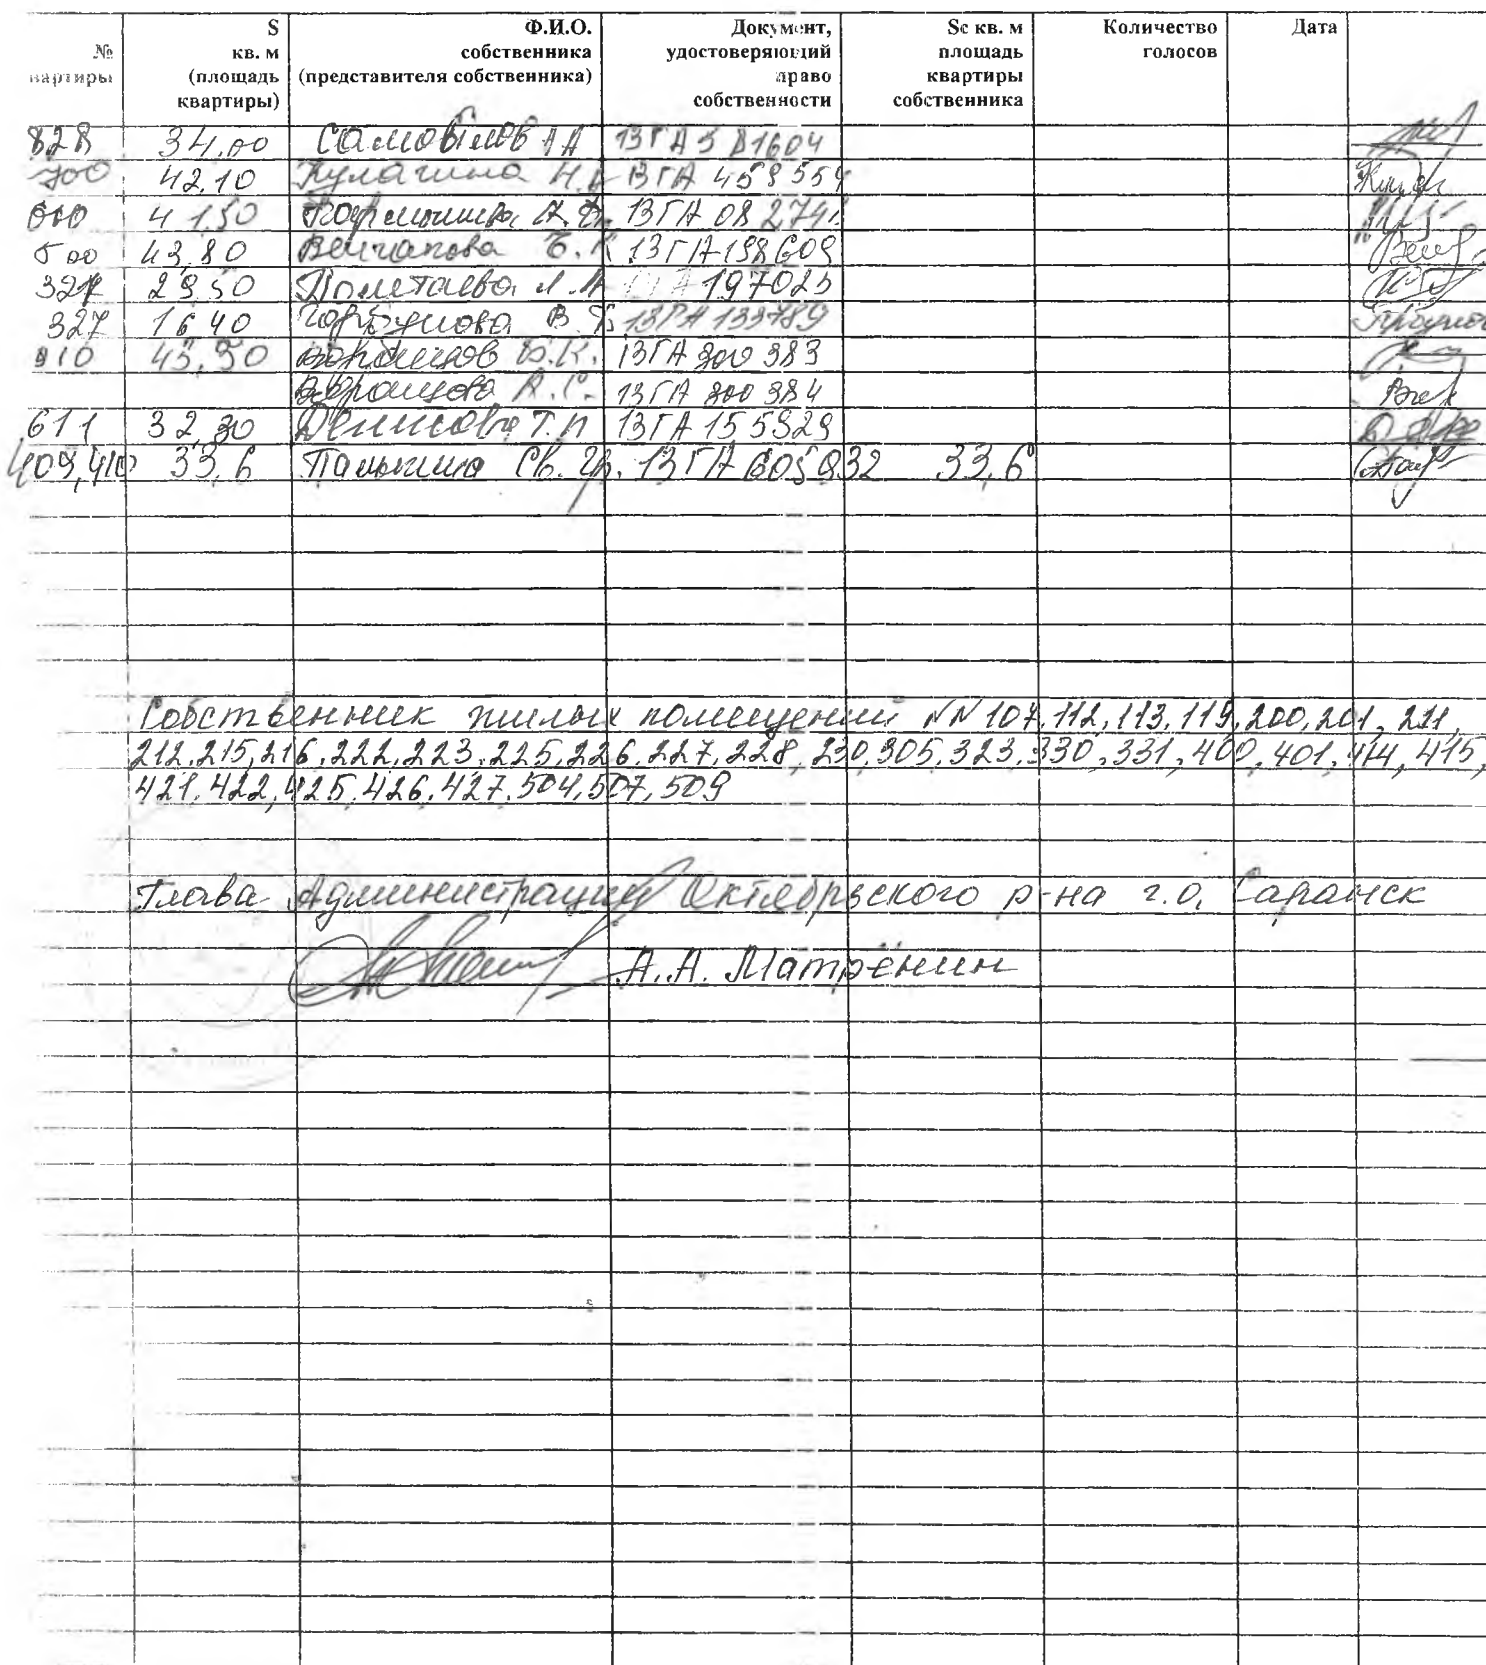 № квартиры | S кв. м (площадь квартиры) | Ф.И.О. собственника (представителя собственника) | Документ, удостоверяющий право собственности | Sс кв. м площадь квартиры собственника | Количество голосов | Дата
828 34,00 13ГА 581604
700 42,10 Кулагина Н. 13ГА 458554
600 41,50 13ГА 08274
500 43,80 13ГА 198609
327 29,50 Полетаева Л. 197025
327 16,40 Горбунова В. 13ГА 133789
910 45,50 Воронцов В.К. 13ГА 300383
Воронцова А.С. 13ГА 300384
611 32,30 Денисова Т.П. 13ГА 155929
409,410 33,6 Палькина Св. Гр. 13ГА 605932 33,6
Собственник жилых помещений NN 107, 112, 113, 119, 200, 201, 211,
212, 215, 216, 222, 223, 225, 226, 227, 228, 230, 305, 323, 330, 331, 400, 401, 414, 415,
421, 422, 425, 426, 427, 504, 507, 509
Глава Администрации Октябрьского р-на г.о. Саранск
А.А. Матрёнин